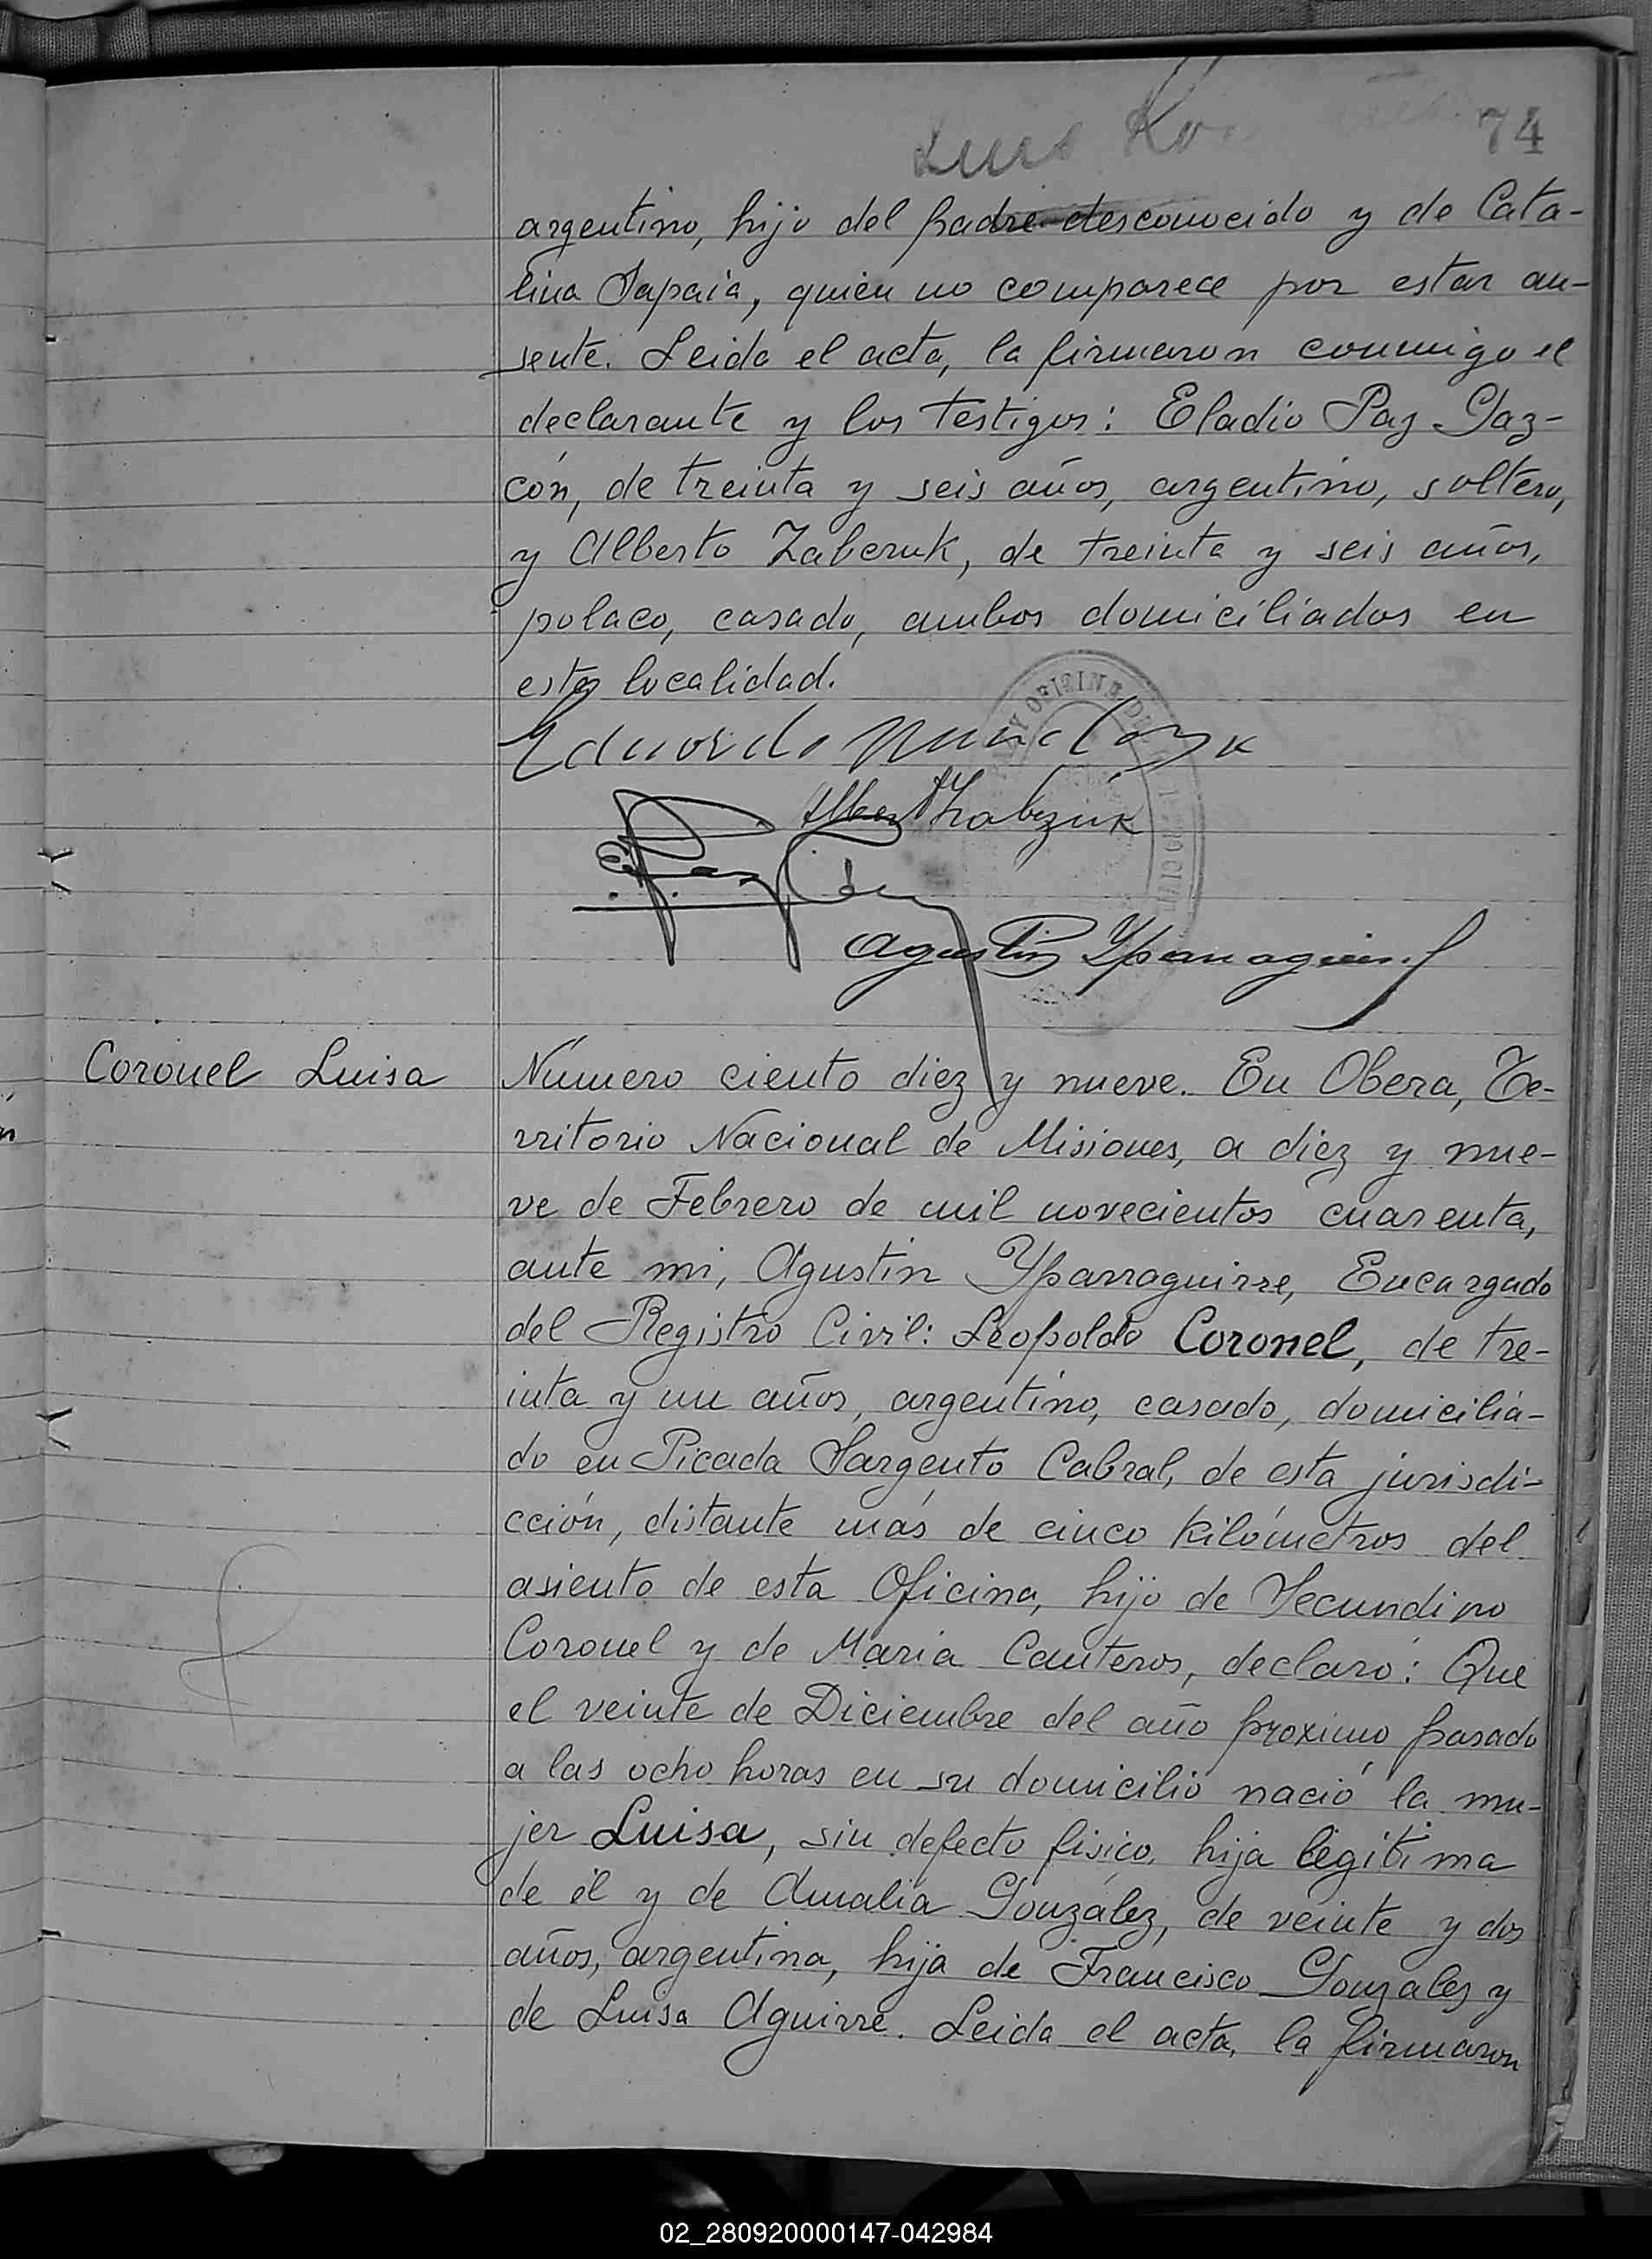 74
argentino, hijo del padre desconocido y de Cata-
lina Sapaia, quien no comparece por estar au-
sente. Leida el acta, la firmaron conmigo el
declarante y los testigos: Eladio Paz Gaz-
cón, de treinta y seis años, argentino, soltero,
y Alberto Zabczuk, de treinta y seis años,
polaco, casado, ambos domiciliados en
esta localidad.
Eduardo
Albert Zabczuk
Agustin Yparraguirre
Coronel Luisa
Número ciento diez y nueve. En Obera, Te-
rritorio Nacional de Misiones, a diez y nue-
ve de Febrero de mil novecientos cuarenta,
ante mi, Agustin Yparraguirre, Encargado
del Registro Civil: Leopoldo Coronel, de tre-
inta y un años, argentino, casado, domicilia-
do en Picada Sargento Cabral, de esta jurisdi-
cción, distante más de cinco kilómetros del
asiento de esta Oficina, hijo de Secundino
Coronel y de Maria Canteros, declaró: Que
el veinte de Diciembre del año proximo pasado
a las ocho horas en su domicilio nació la mu-
jer Luisa, sin defecto fisico, hija legitima
de él y de Amalia González, de veinte y dos
años, argentina, hija de Francisco Gonzalez y
de Luisa Aguirre. Leida el acta, la firmaron
02_280920000147-042984